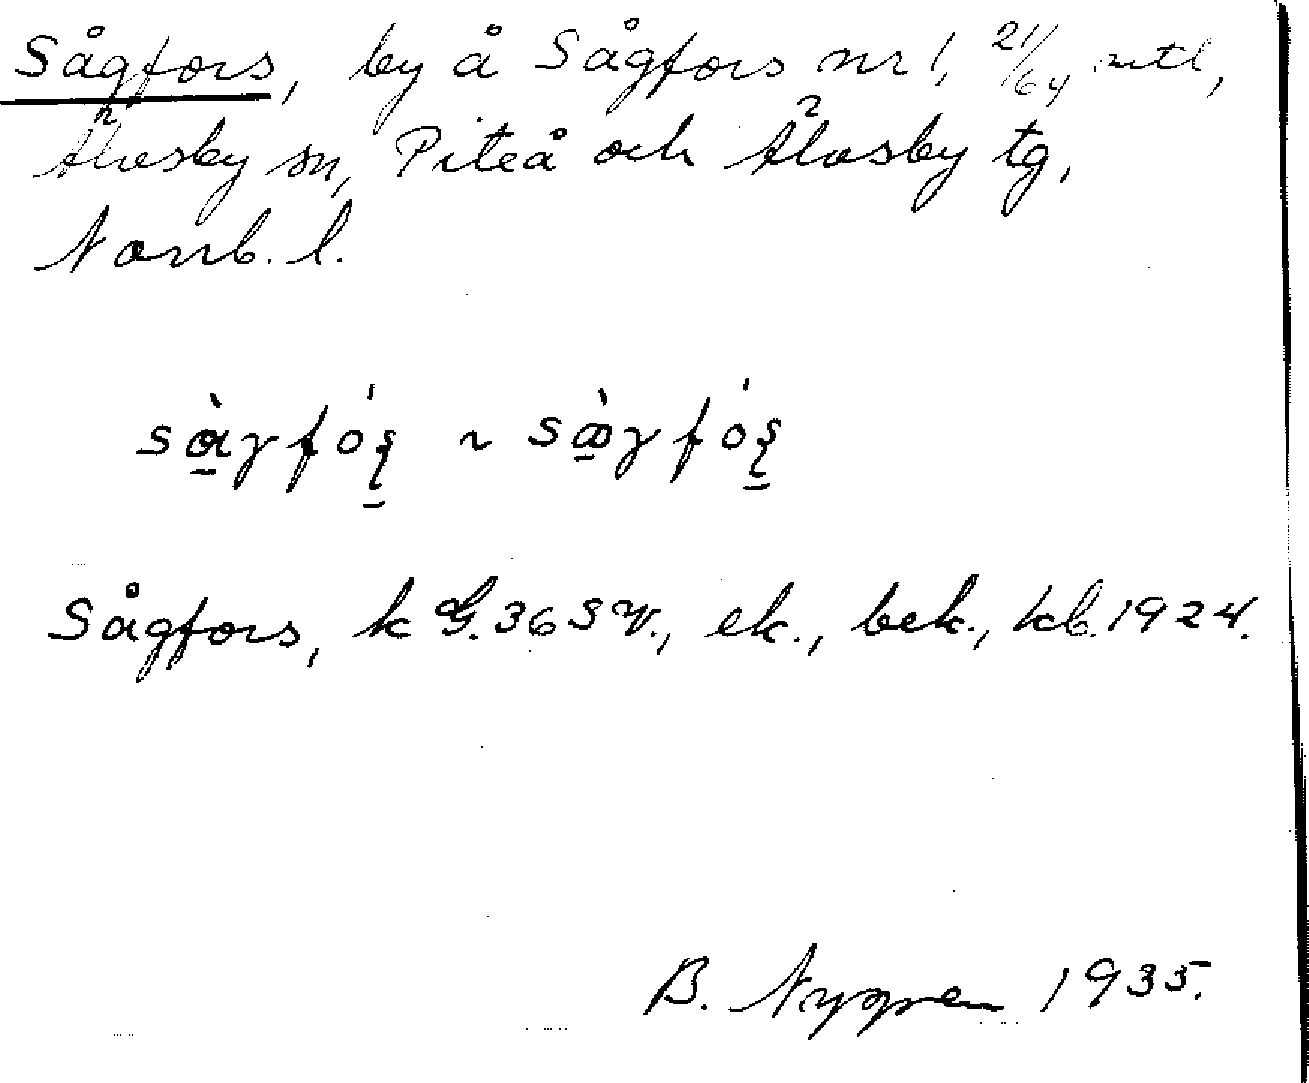 Sågfors, by å Sågfors nr 1, 21/64 mtl,
Älvsby sn, Piteå och Älvsby tg,
Norrb. l.
Sågfors, k G. 36 SV., ek., bek., kb. 1924.
B. Nygren 1935.